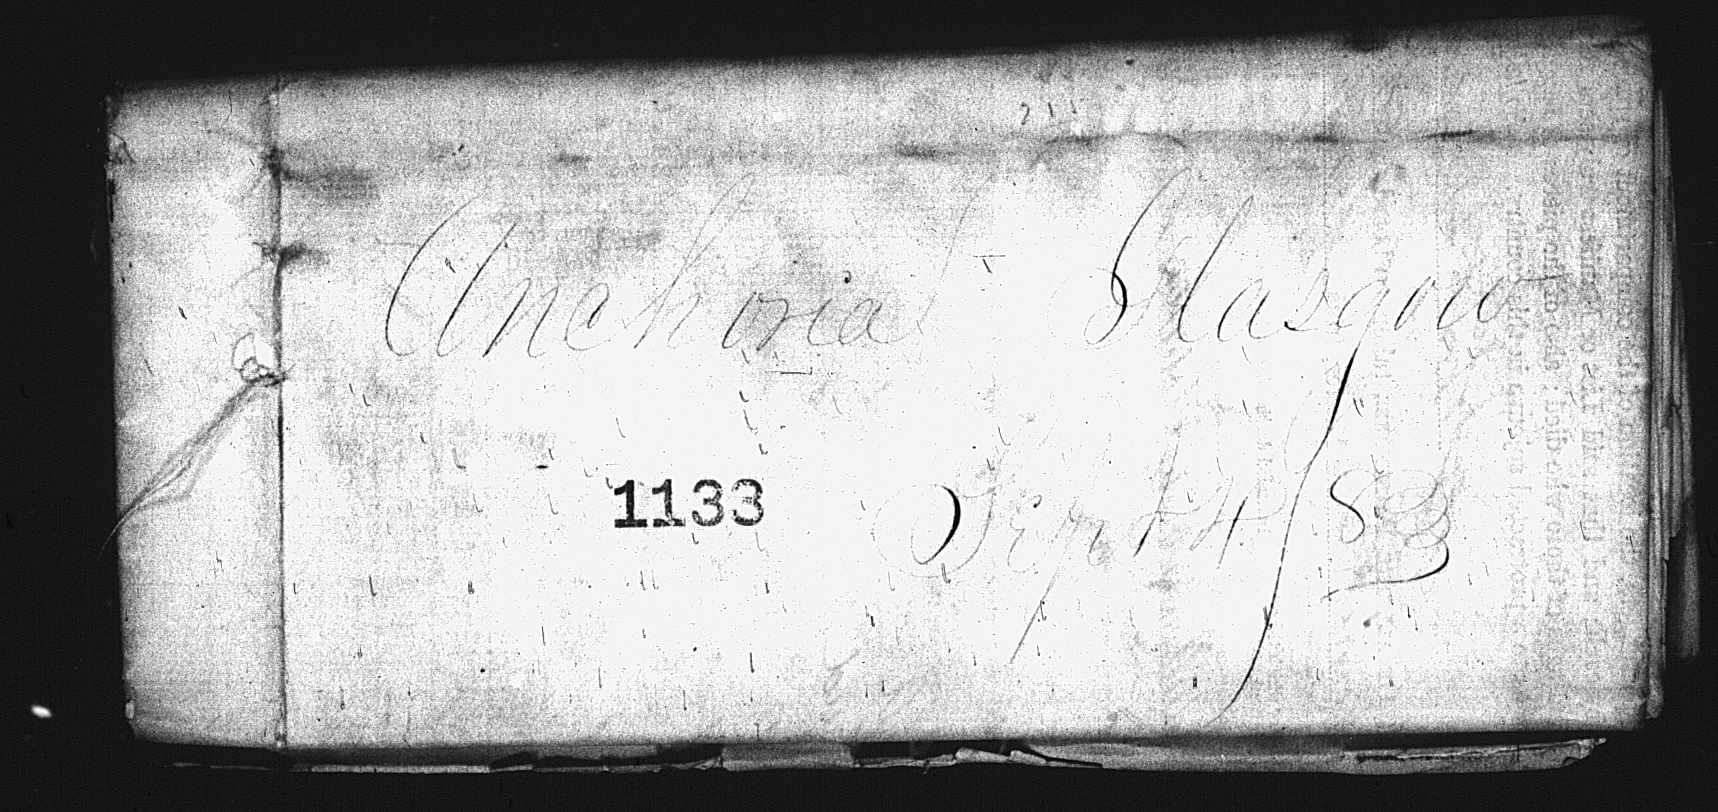 Anchoria Glasgow
1133 Sept 4/83